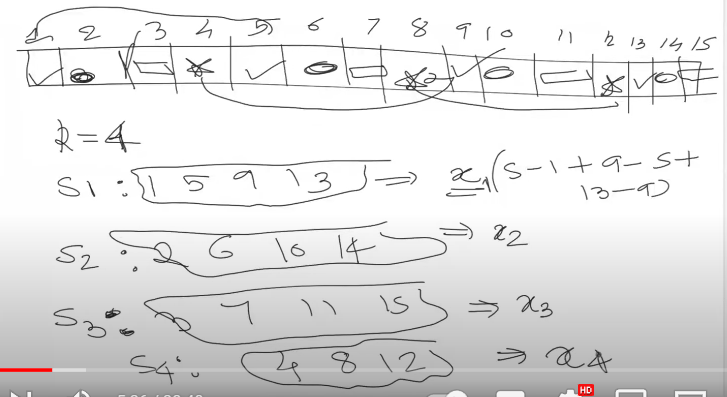 1 2 3 4 5 6 7 8 9 10 11 12 13 14 15
k=4
S1 : 1 5 9 13 ⇒ x1(5-1+9-5+
13-9)
S2 : 2 6 10 14 ⇒ x2
S3 : 3 7 11 15 ⇒ x3
S4 : 4 8 12 ⇒ x4
HD